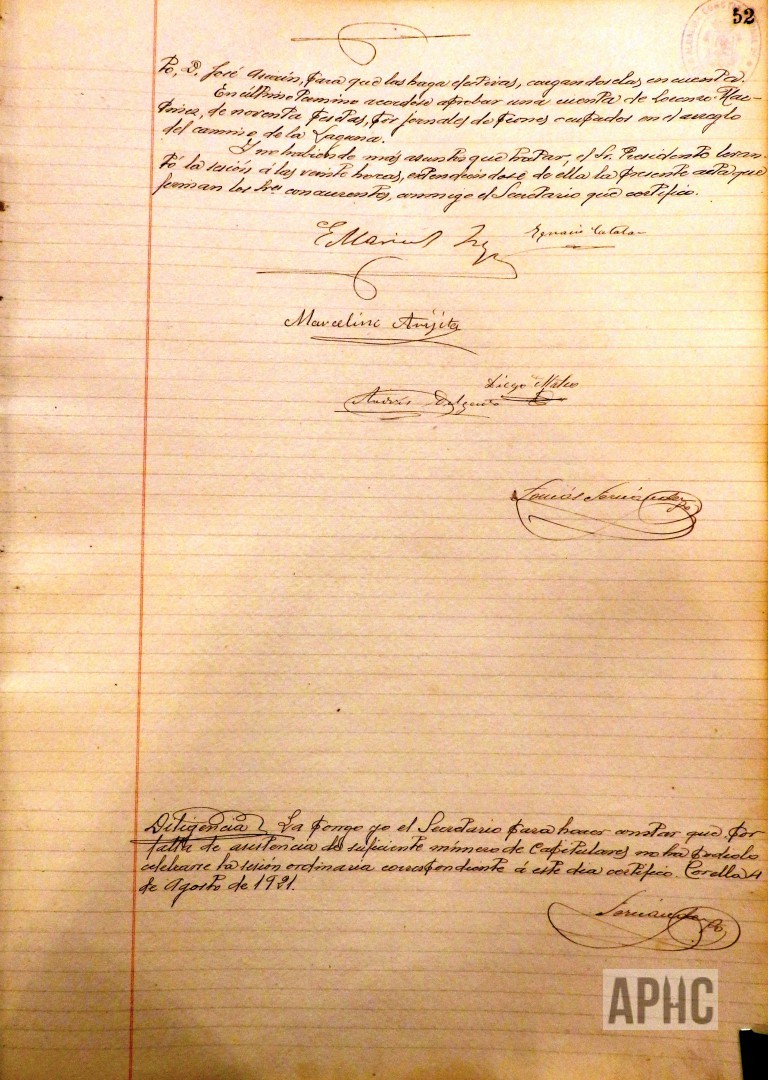 52
to, D. José Asiaín, para que las haga efectivas, cargandoselas en cuenta.
En último termino acordóse aprobar una cuenta de Lorenzo Mar-
tinez, de noventa pesetas, por jornales de peones ocupados en el arreglo
del camino de la Laguna.
Y no habiendo más asuntos que tratar, el Sr. Presidente levan-
tó la sesión á las veinte horas, extendiéndose de ella la presente acta que
firman los Sres concurrentes, conmigo el Secretario que certifico.
Ignacio Catalan
Marcelino Arigita
Diego Mateo
Andrés
Tomás Fernández
Diligencia La pongo yo el Secretario para hacer constar que, por
falta de asistencia de suficiente número de Capitulares no ha podido
celebrarse la sesión ordinaria correspondiente á este dia certifico. Corella 4
de Agosto de 1921.
Fernández
APHC